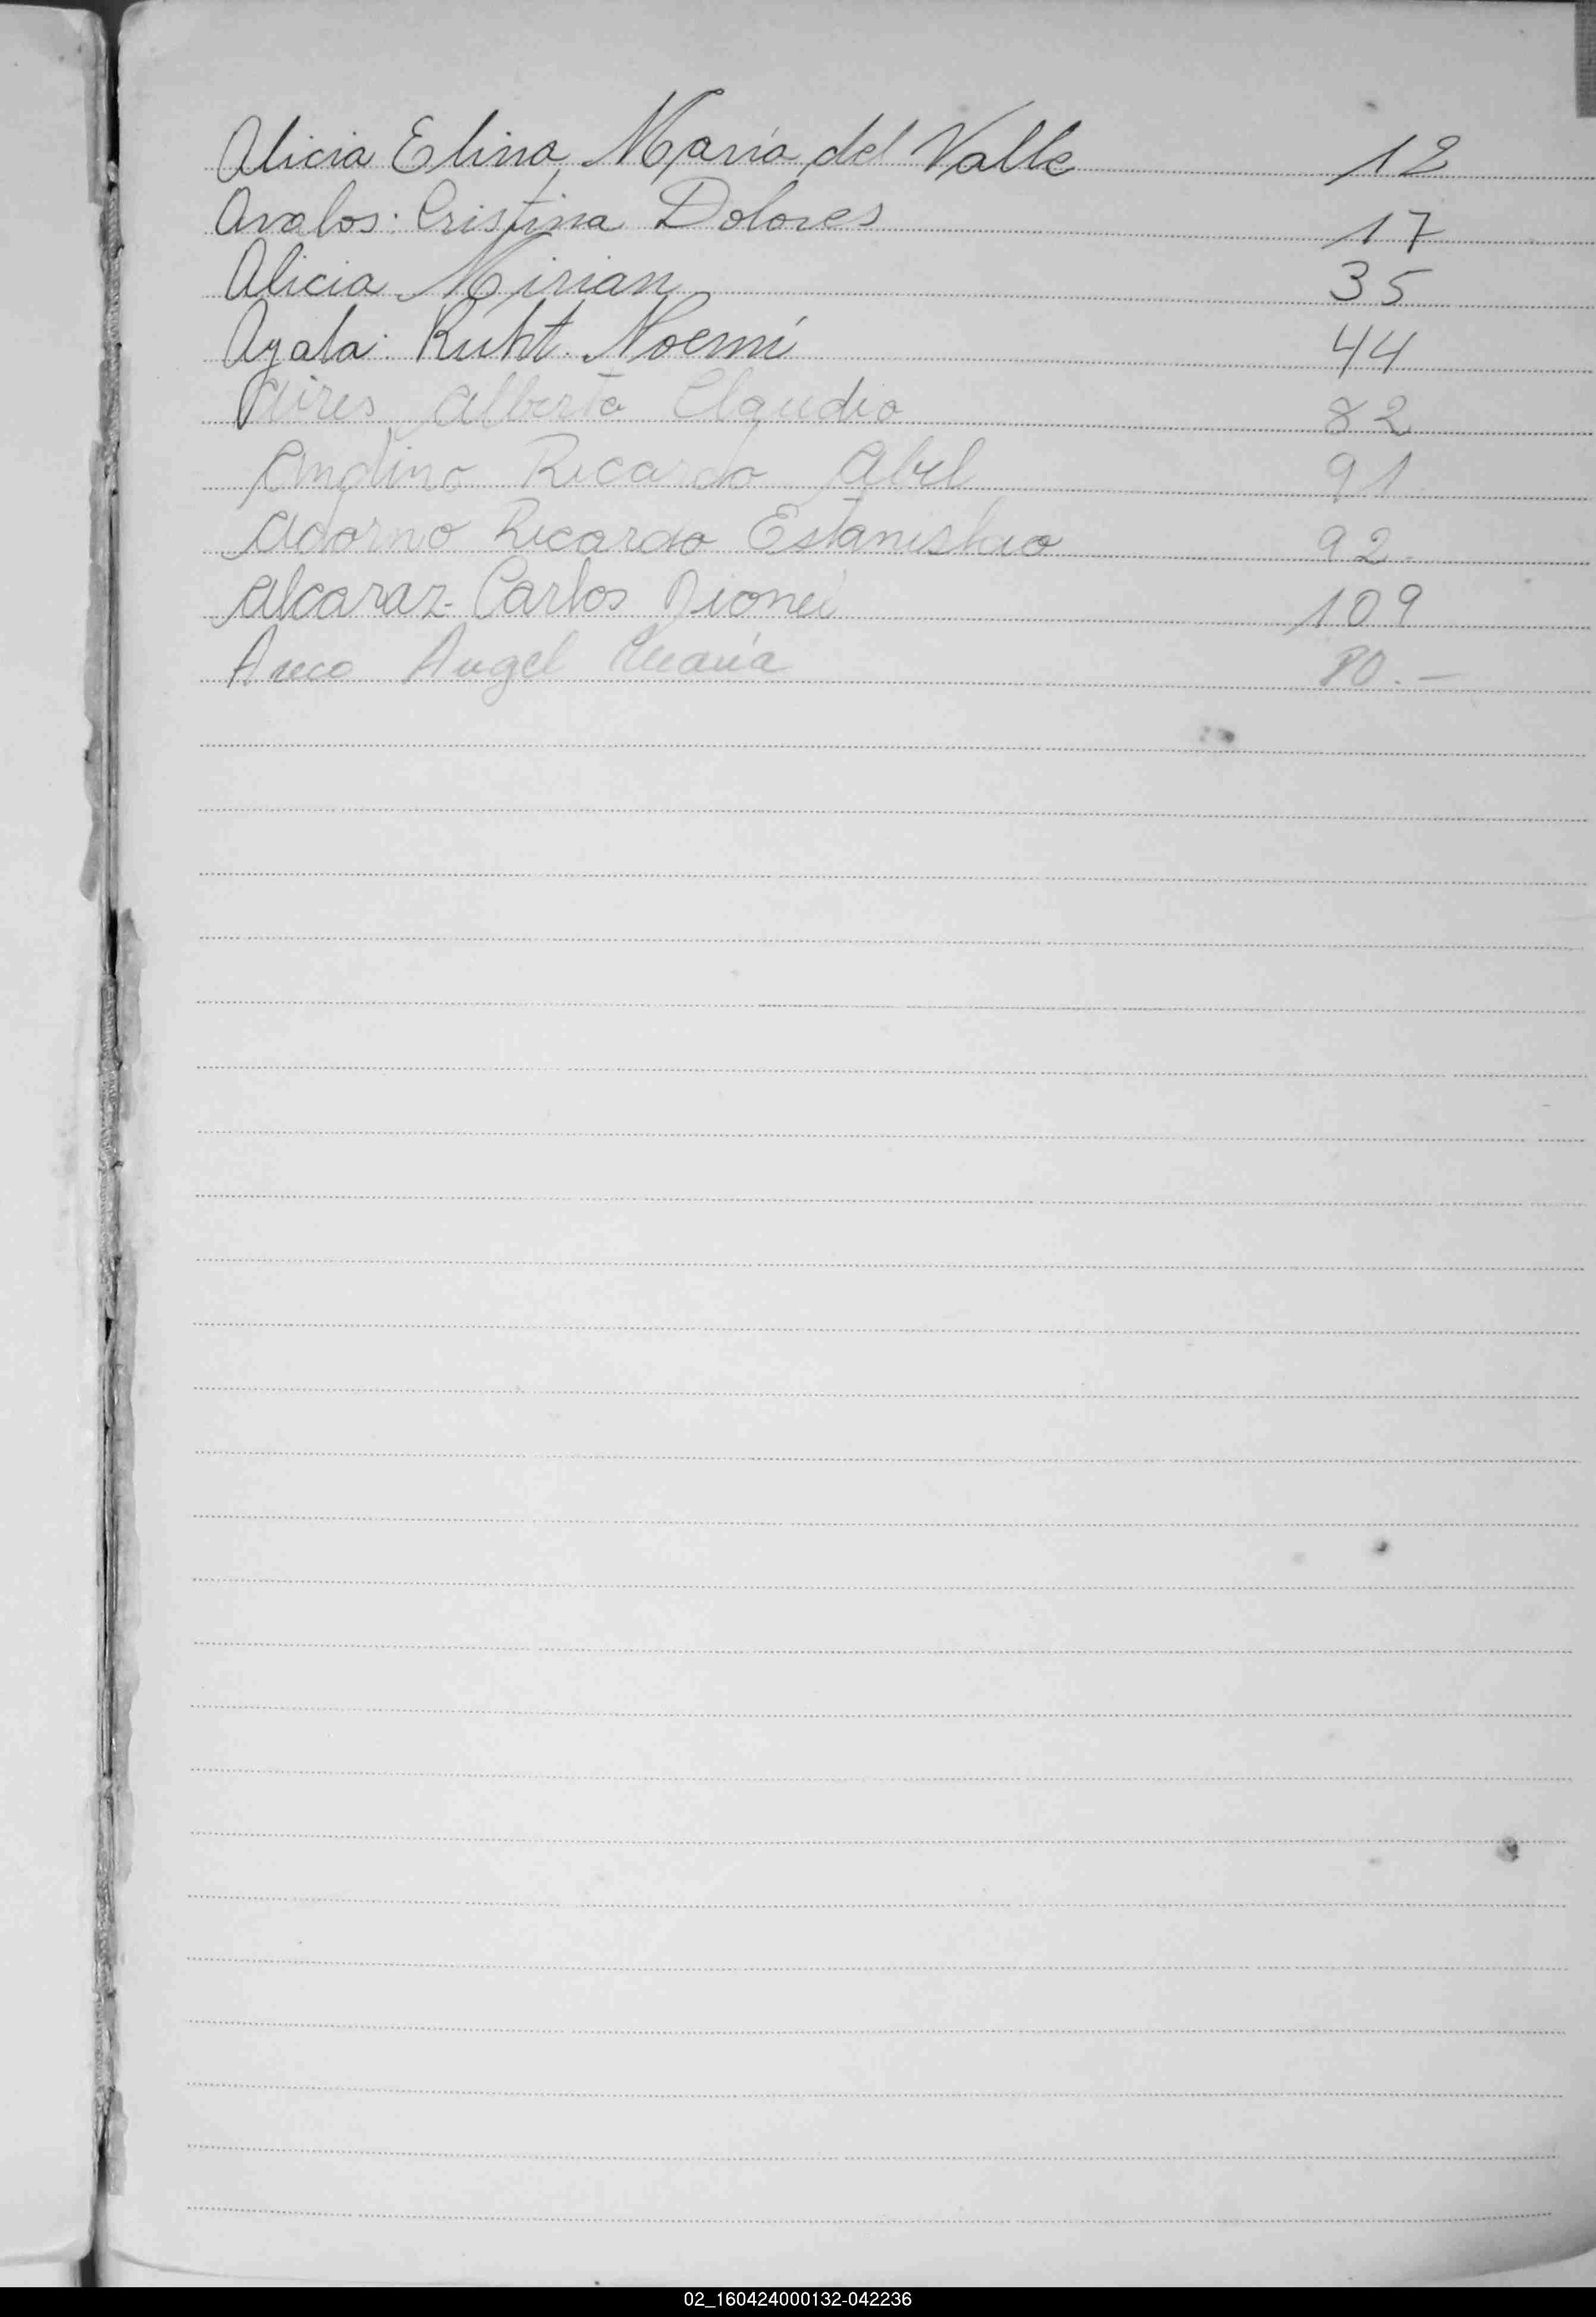 Alicia Elina María del Valle 12
Avalos: Cristina Dolores 17
Alicia Mirian 35
Ayala: Ruht Noemí 44
Aires Alberto Claudio 82
Andino Ricardo Abel 91
Adorno Ricardo Estanislao 92
Alcaraz Carlos 109
Areco Angel María 80.-
02_160424000132-042236